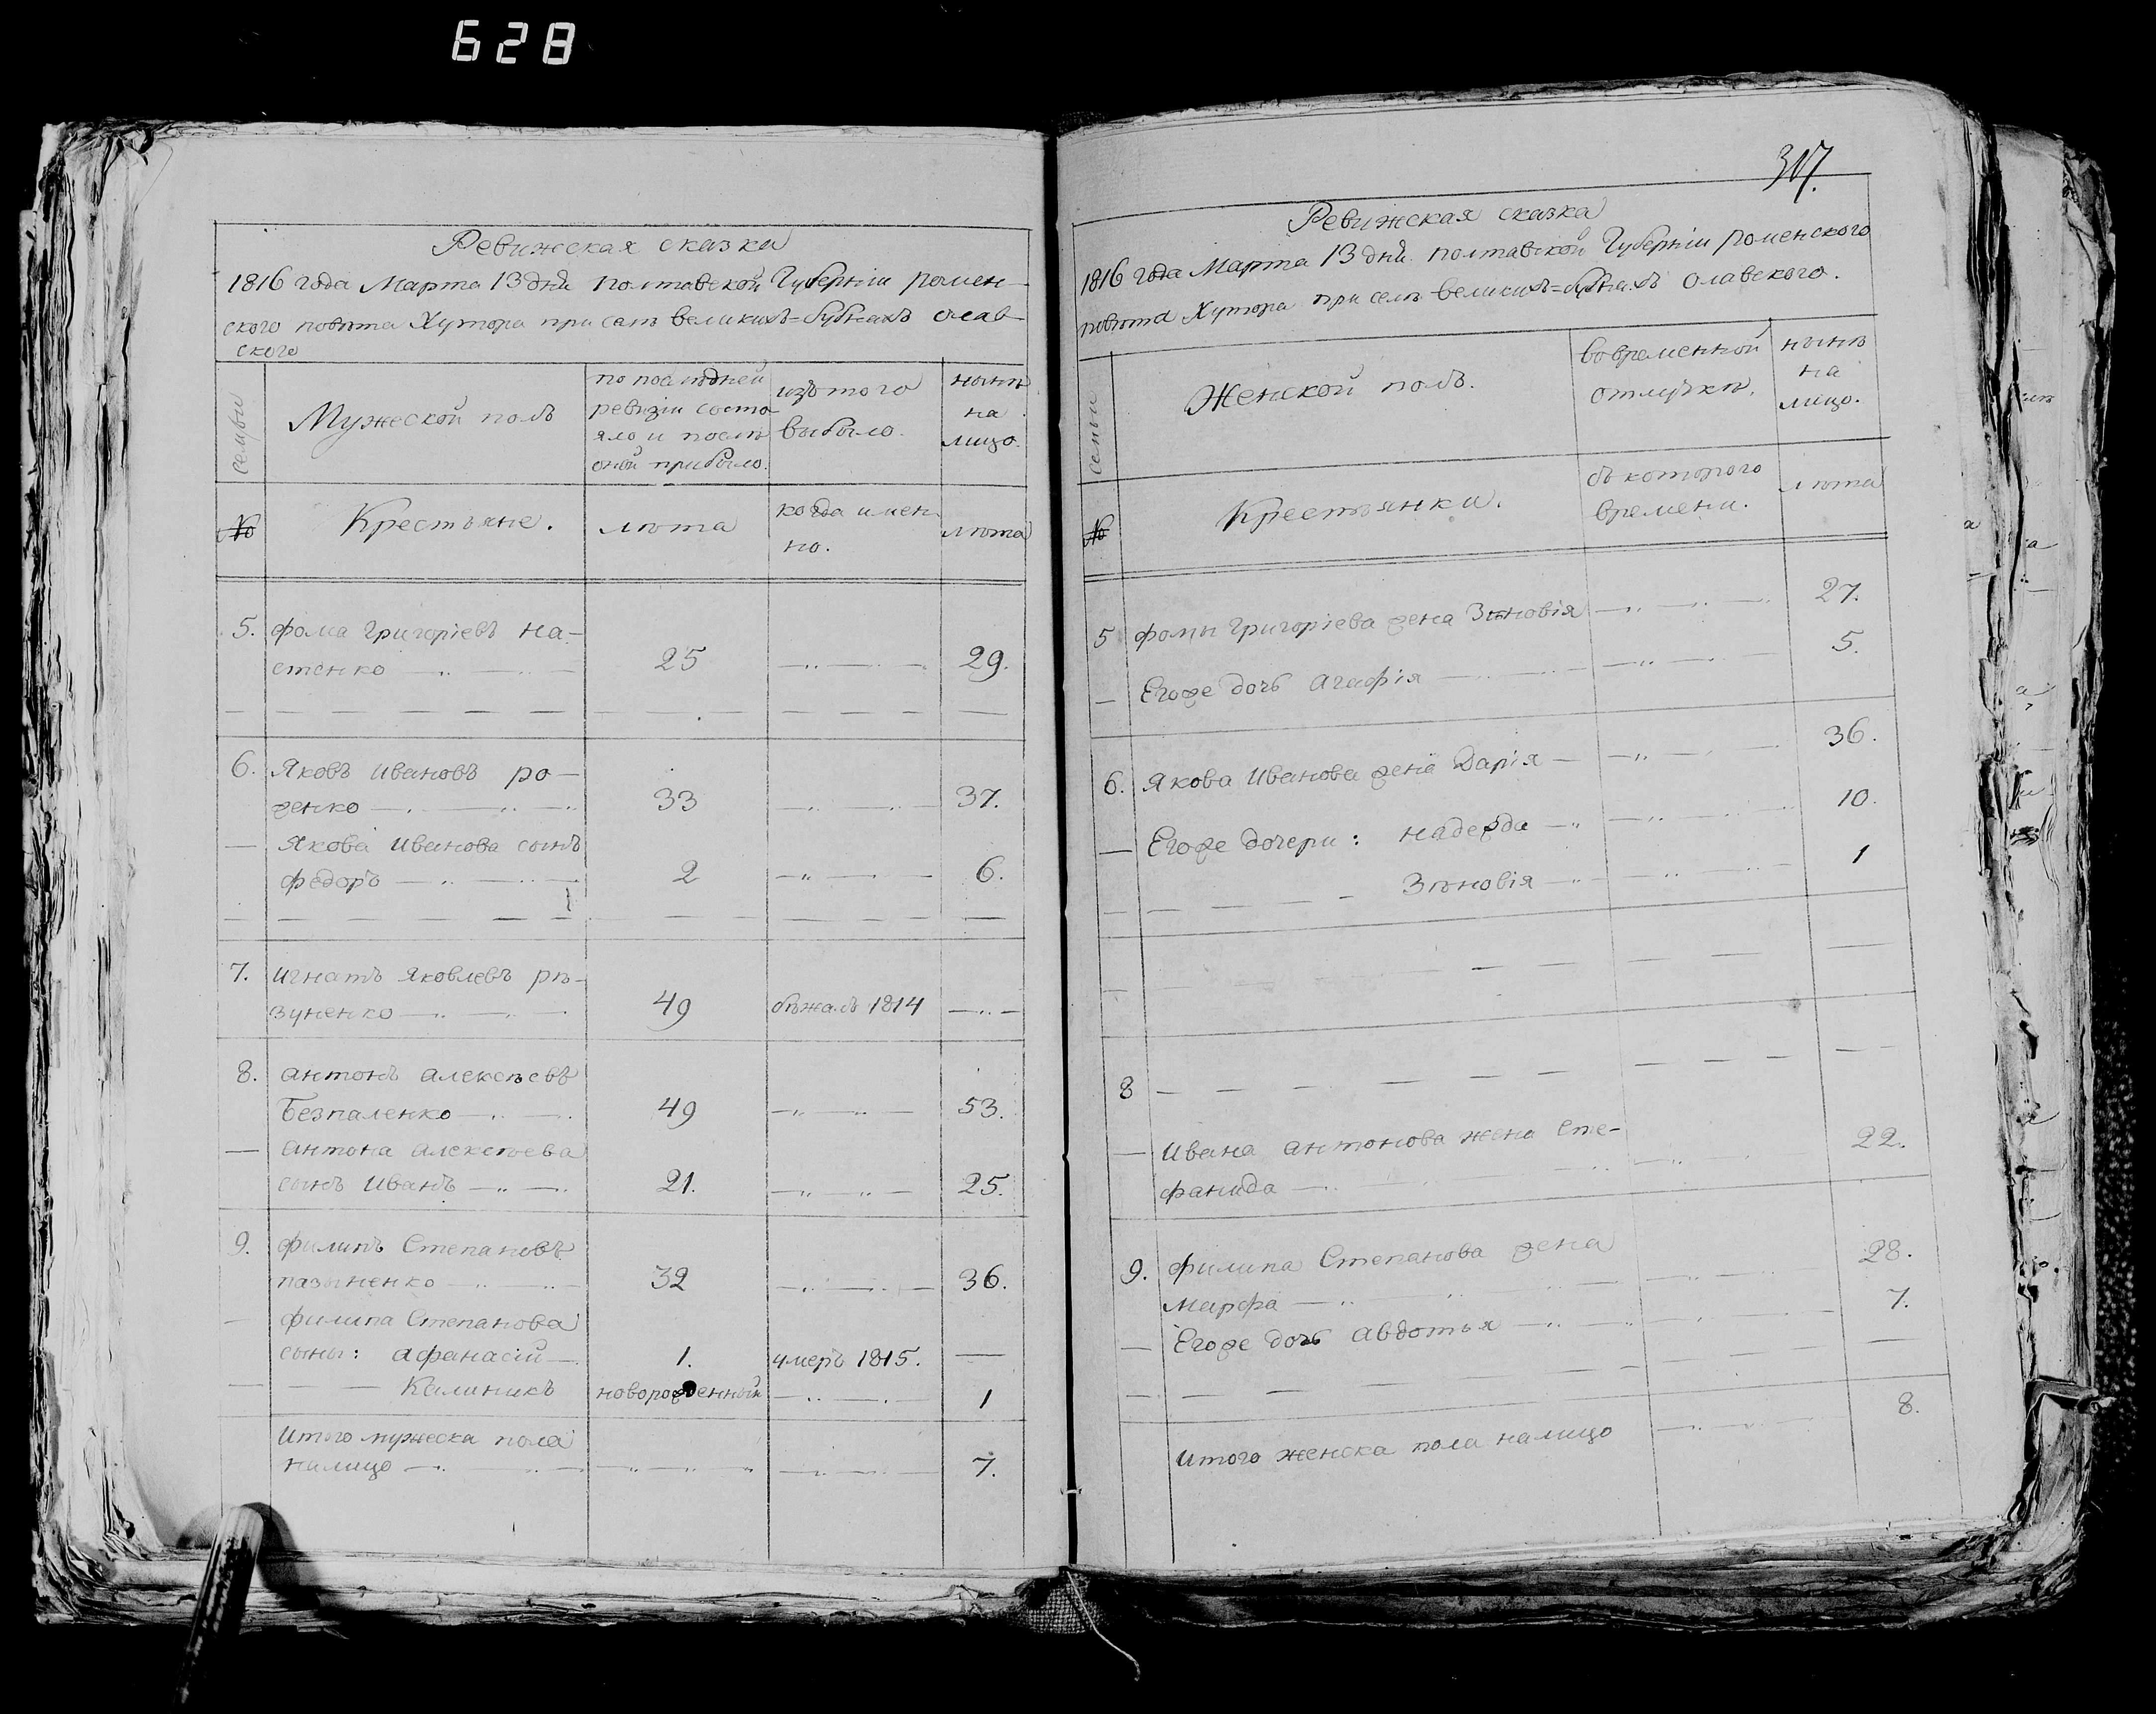 628
Ревижская сказка
1816 года Марта 13 дня Полтавской Губернiи ромен-
ского повѣта Хутора при селѣ великихъ=бубнахъ олав-
ского
семьи
Мужеской полъ
по последней
ревизiи состо
яло и послѣ
оной прибыло.
изъ того
выбыло.
нынѣ
на
лицо.
№
Крестьяне.
лѣта
когда имен
но.
лѣта
5. фома григорiевъ на-
стенко 25 29.
6. Яковъ ивановъ ро-
женко 33 37.
Якова иванова сынъ
федоръ 2 6.
7. игнатъ яковлевъ рѣ-
зуненко 49 бѣжалъ 1814
8. антонъ алексѣевъ
Безпаленко 49 53.
антона алексѣева
сынъ иванъ 21. 25.
9. филипъ Степановъ
пазыненко 32 36.
филипа Степанова
сыны: афанасiй 1. умеръ 1815.
Калиникъ новорожденный 1
итого мужеска пола
налицо 7.
307.
Ревижская сказка
1816 года Марта 13 дня полтавской Губернiи роменского
повѣта Хутора при селѣ великихъ=бубнахъ олавского.
семьи
Женской полъ.
во временной
отлучкѣ.
нынѣ
на
лицо.
№
Крестьянки.
съ которого
времени.
лѣта
5 фомы григорiева жена Зѣновiя 27.
Егоже дочь агафiя 5.
6. Якова иванова жена Дарiя 36.
Егоже дочери: надежда 10.
Зѣновiя 1
8
ивана антонова жена сте-
фанида 22.
9. филипа Степанова жена
марфа 28.
Егоже дочь авдотья 7.
итого женска пола налицо 8.